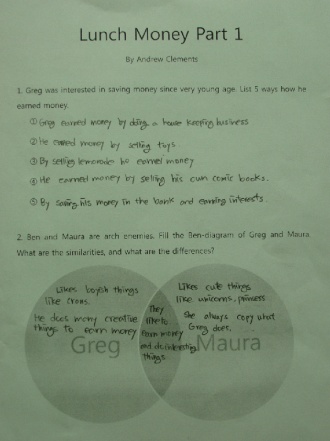 Lunch Money Part 1
By Andrew Clements
1. Greg was interested in saving money since very young age. List 5 ways how he
earned money.
① Greg earned money by doing a house keeping business
② He earned money by selling toys
③ By selling lemonade he earned money
④ He earned money by selling his own comic books.
⑤ By saving his money in the bank and earning interests.
2. Ben and Maura are arch enemies. Fill the Ben-diagram of Greg and Maura.
What are the similarities, and what are the differences?
Likes boyish things
like
He does many creative
things to earn money
Greg
They
like to
earn money
and do interesting
things.
Likes cute things
like unicorns, princess
She always copy what
Greg does.
Maura